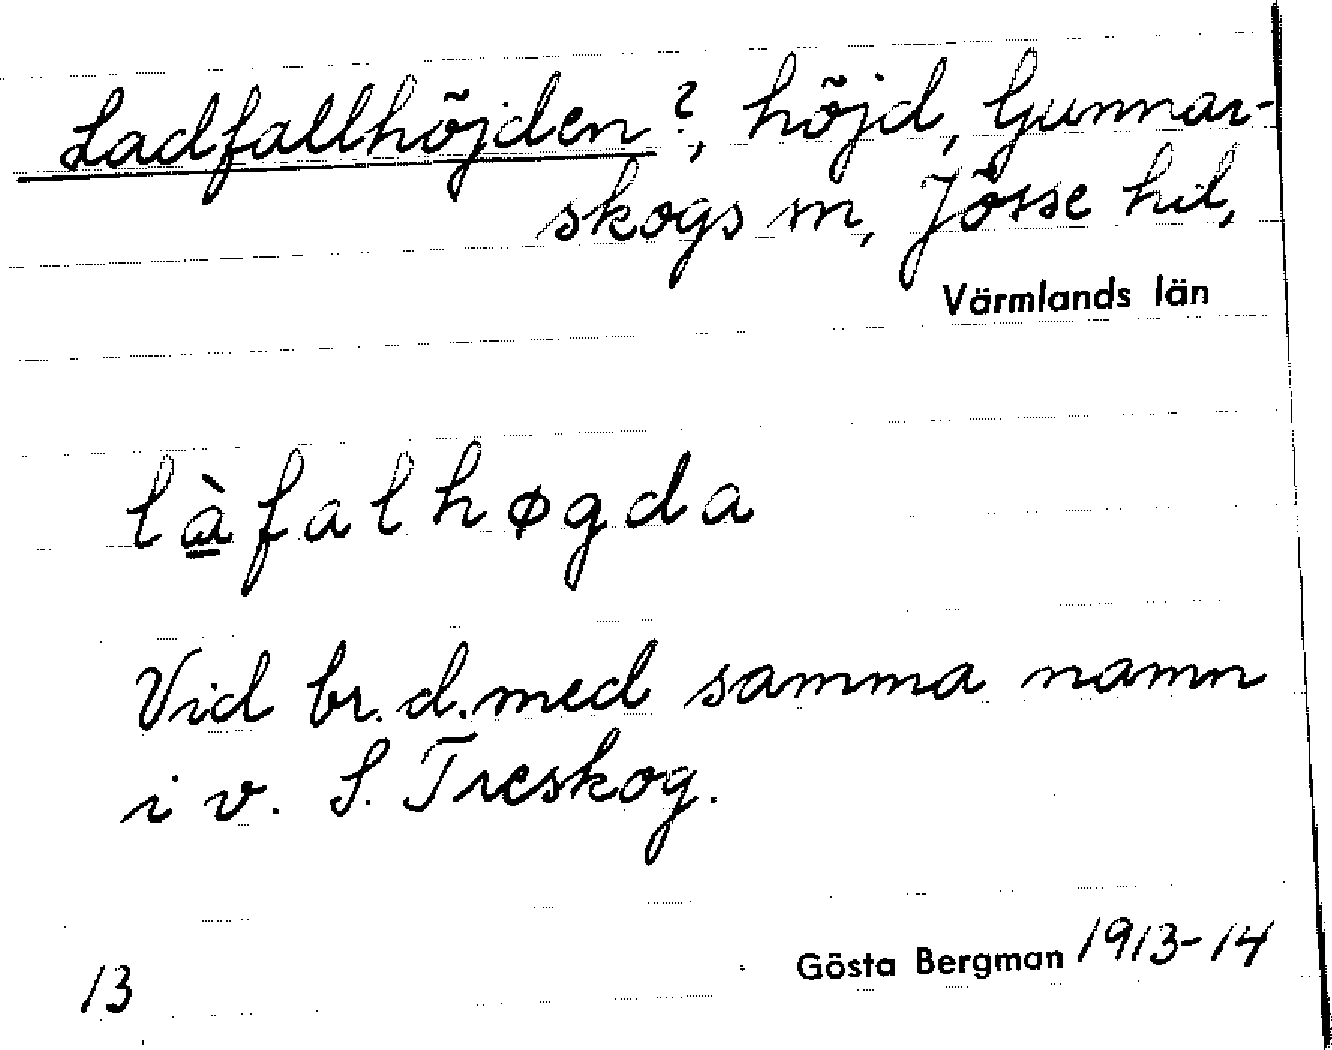 Ladfallhöjden?, höjd, Gunnar-
skogs sn, Jösse hd,
Värmlands län
là̱falhøgda
Vid br. d. med samma namn
i v. S. Treskog.
13
Gösta Bergman 1913-14